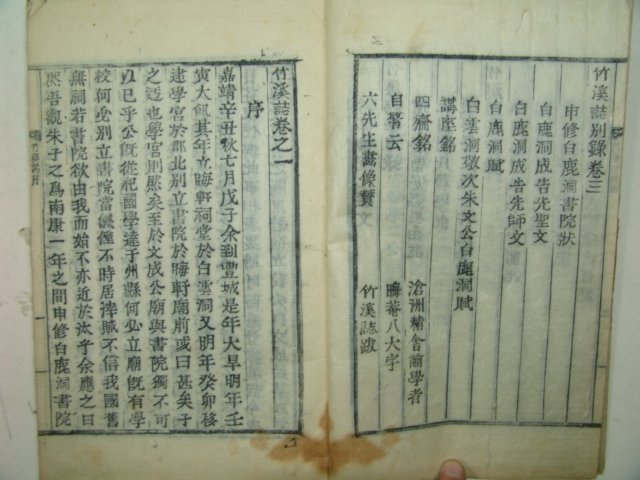 竹溪誌別錄卷三
申修白鹿洞書院狀
白鹿洞成告先聖文
白鹿洞成告先師文
白鹿洞賦
白雲洞敬次朱文公白鹿洞賦
講座銘
四齋銘 滄洲精舍諭學者
自警云 晦菴八大字
六先生畫像贊文 竹溪誌跋
竹溪誌卷之一
序
嘉靖辛丑秋七月戊子余到豐城是年大旱明年壬
寅大飢其年立晦軒祠堂於白雲洞又明年癸卯移
建學宮於郡北別立書院於晦軒廟前或曰甚矣子
之迂也學宮則然矣至於文成公廟與書院獨不可
以已乎公旣從祀國學達于州縣何必立廟旣有學
校何必別立書院當饑饉不時居卑賤不信我國舊
無祠若書院欲由我而始不亦近於汰乎余應之曰
然吾觀朱子之爲南康一年之間申修白鹿洞書院